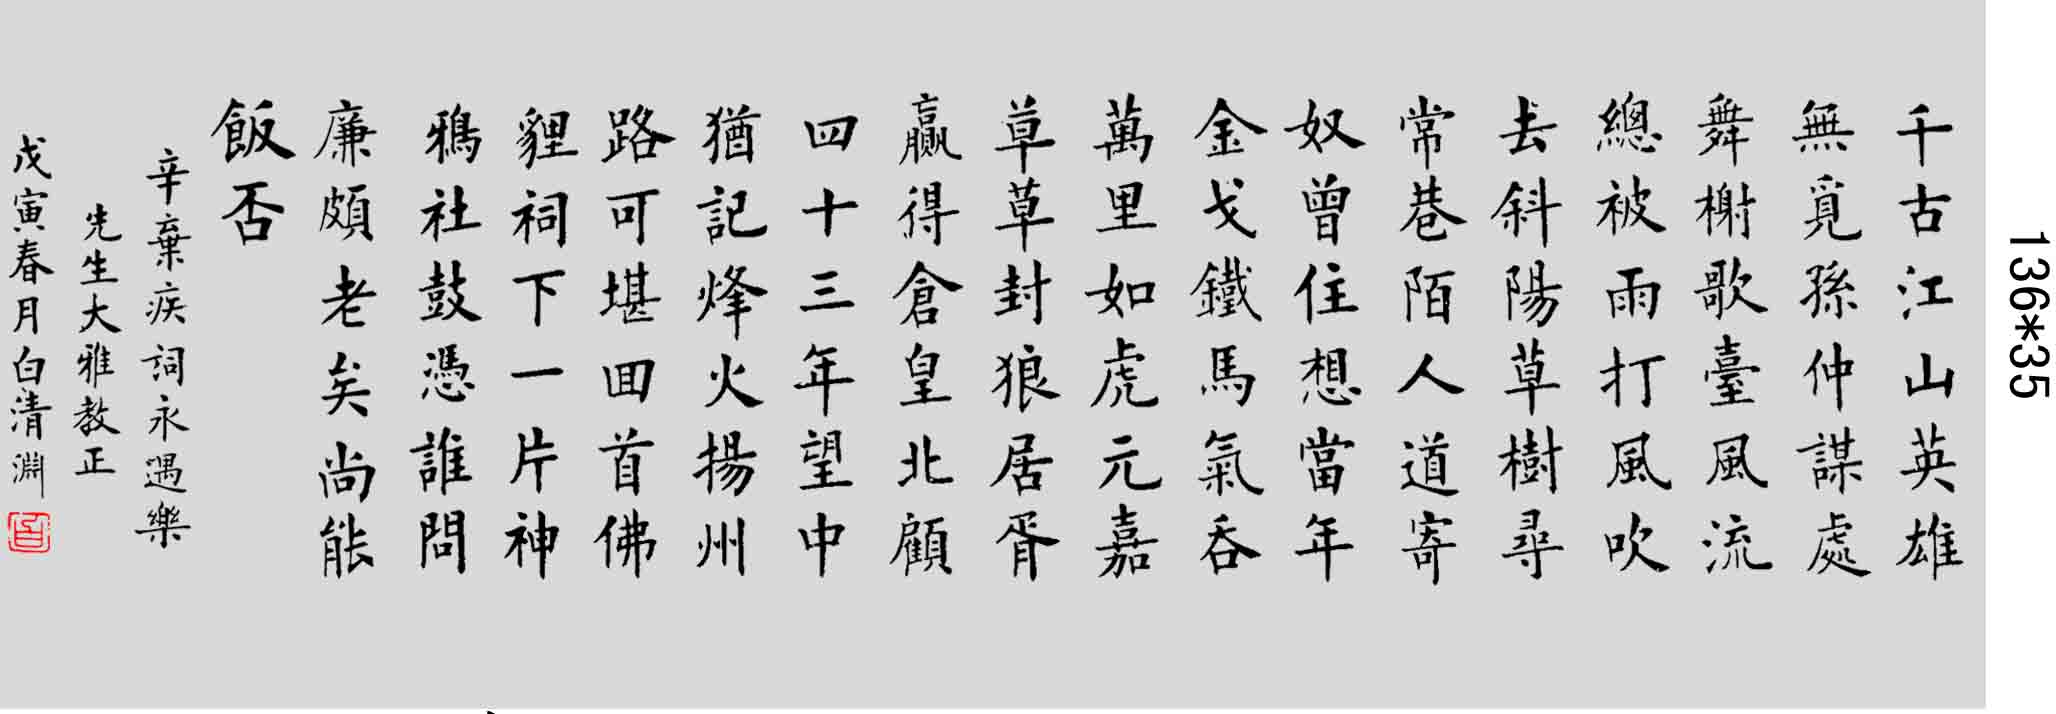 千古江山英雄
無覓孫仲謀處
舞榭歌臺風流
總被雨打風吹
去斜陽草樹尋
常巷陌人道寄
奴曾住想當年
金戈鐵馬氣吞
萬里如虎元嘉
草草封狼居胥
贏得倉皇北顧
四十三年望中
猶記烽火揚州
路可堪回首佛
貍祠下一片神
鴉社鼓憑誰問
廉頗老矣尚能
飯否
辛棄疾詞永遇樂
先生大雅教正
戊寅春月白清淵
136*35